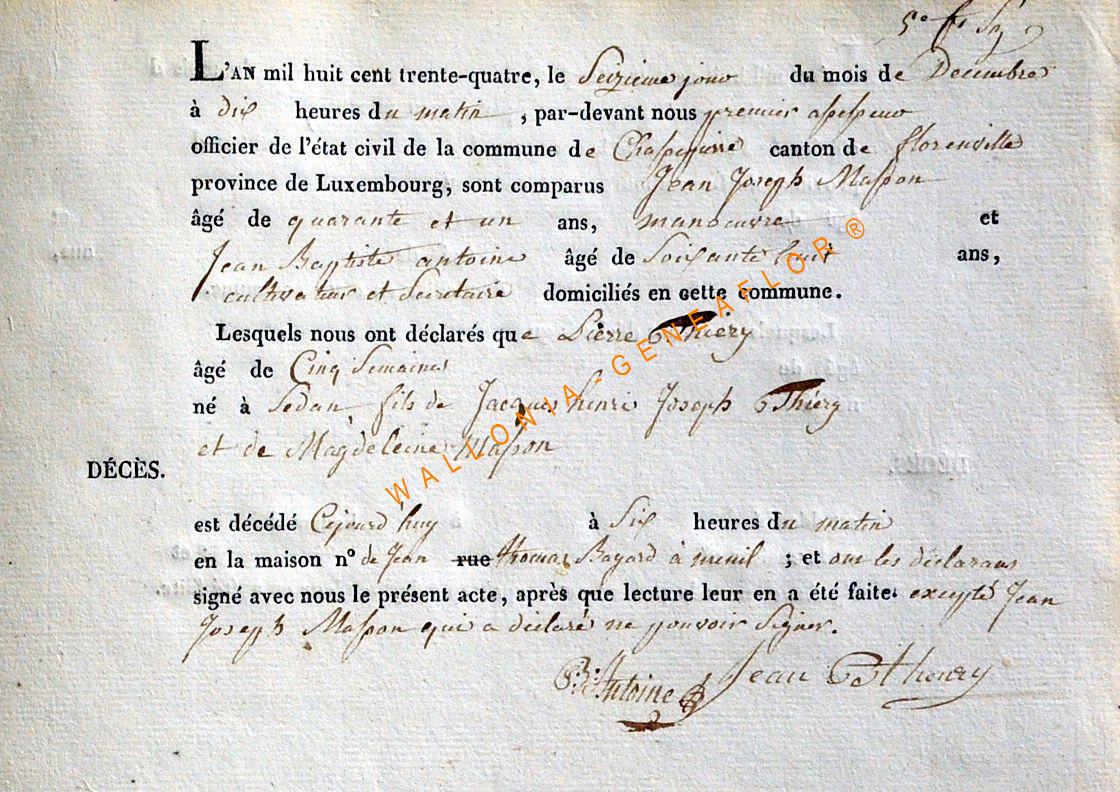 L'AN mil huit cent trente-quatre, le Seizieme jour du mois de Decembre
à dix heures du matin, par-devant nous premier assesseur
officier de l'état civil de la commune de Chassepierre canton de florenville
province de Luxembourg, sont comparus Jean Joseph Masson
âgé de quarante et un ans, manoeuvre et
Jean Baptiste antoine âgé de Soixante huit ans,
cultivateur et Secretaire domiciliés en cette commune.
Lesquels nous ont déclarés que Pierre Thiery
âgé de Cinq Semaines
né à Sedan, fils de Jacques henri Joseph Thiery
et de Magdeleine Masson
DÉCÈS.
est décédé Cejourd'huy à Six heures du matin
en la maison nº de Jean rue thomas Bayard à menil ; et ont les déclarans
signé avec nous le présent acte, après que lecture leur en a été faite. excepté Jean
Joseph Masson qui a déclaré ne pouvoir Signer.
Antoine Jean
WALLONIA-GENEAFLOR®